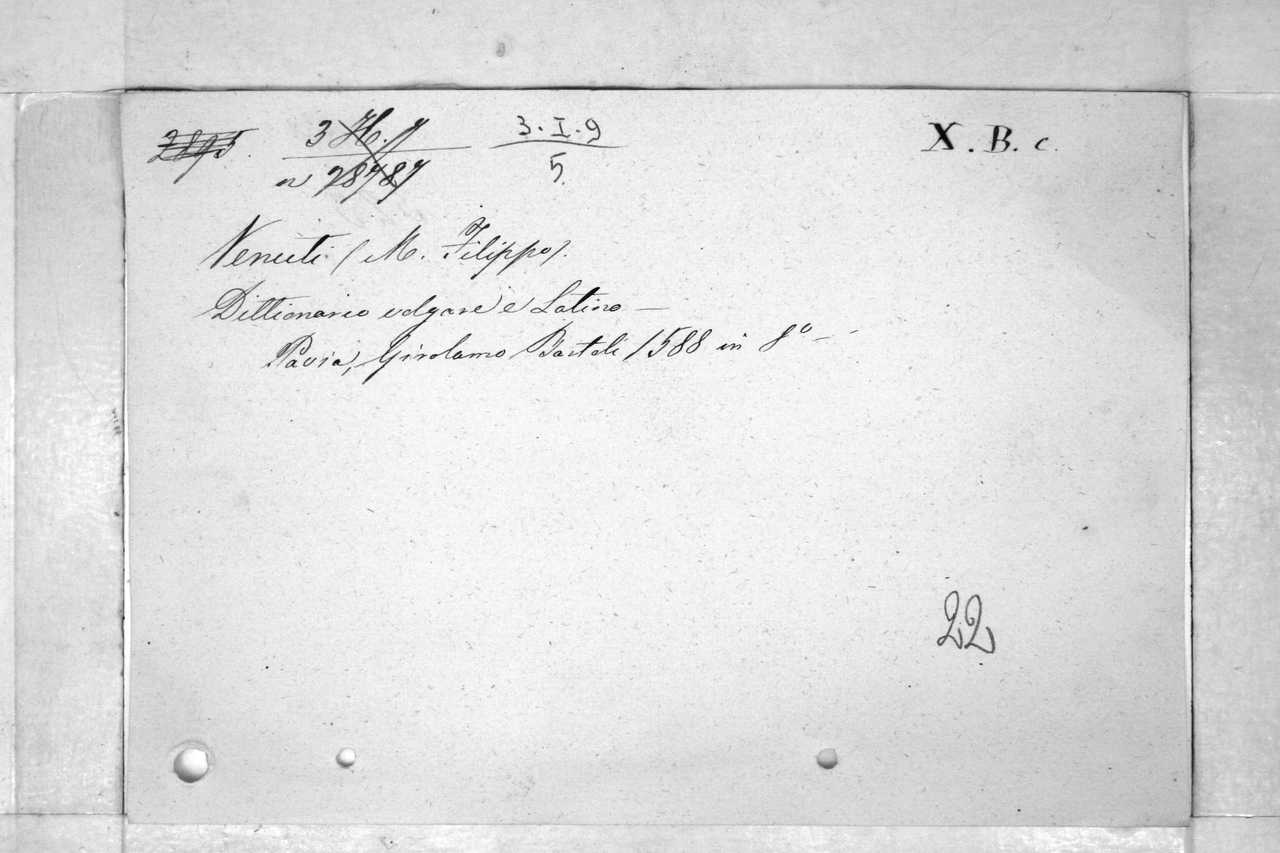 2895. 3 H. 7 3.I.9 X. B. c.
n 28787 5
Venuti (M. Filippo).
Dittionario volgare e Latino —
Pavia, Girolamo Bartoli 1588 in 8º —
22